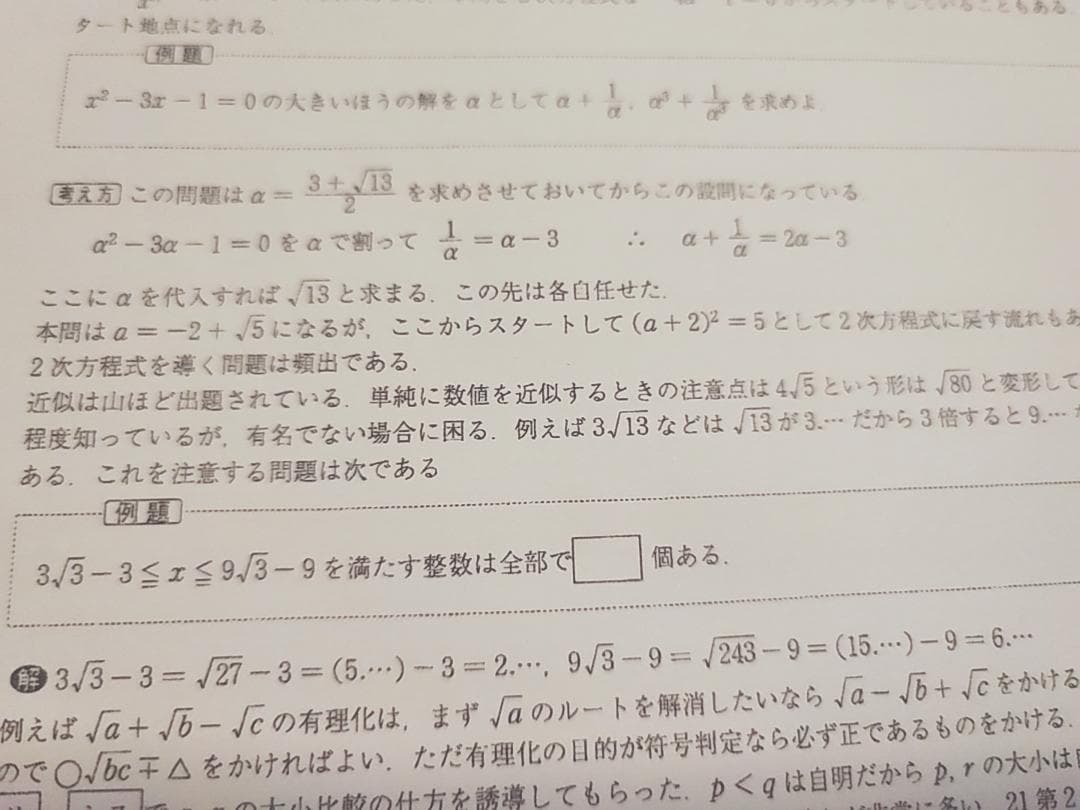 タート地点になれる
例題
x² − 3x − 1 = 0の大きいほうの解をαとしてα + 1/α, α³ + 1/α³ を求めよ
考え方 この問題はα = (3 + √13)/2 を求めさせておいてからこの設問になっている
α² − 3α − 1 = 0をαで割って 1/α = α − 3 ∴ α + 1/α = 2α − 3
ここにαを代入すれば√13と求まる. この先は各自任せた.
本問はa = −2 + √5になるが, ここからスタートして(a + 2)² = 5として2次方程式に戻す流れも
2次方程式を導く問題は頻出である.
近似は山ほど出題されている. 単純に数値を近似するときの注意点は4√5という形は√80と変形して
程度知っているが, 有名でない場合に困る. 例えば3√13などは√13が3.…だから3倍すると9.…
ある. これを注意する問題は次である
例題
3√3 − 3 ≦ x ≦ 9√3 − 9を満たす整数は全部で 個ある.
解 3√3 − 3 = √27 − 3 = (5.…) − 3 = 2.…, 9√3 − 9 = √243 − 9 = (15.…) − 9 = 6.…
例えば√a + √b − √cの有理化は, まず√aのルートを解消したいなら√a − √b + √cをかける
ので○√bc ∓ △をかければよい. ただ有理化の目的が符号判定なら必ず正であるものをかける.
の大小比較の仕方を誘導してもらった. p < qは自明だからp, rの大小は